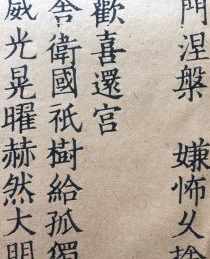 門涅槃　嫌怖乂捨
歡喜還宮
舍衛國祇樹給孤獨
威光晃曜赫然大明